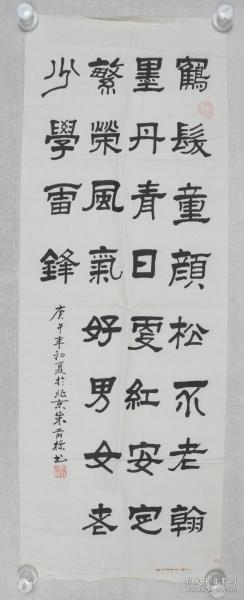 鶴髮童顏松不老翰
墨丹青日更紅安定
繁榮風氣好男女老
少學雷鋒
庚午年初夏於北京朱